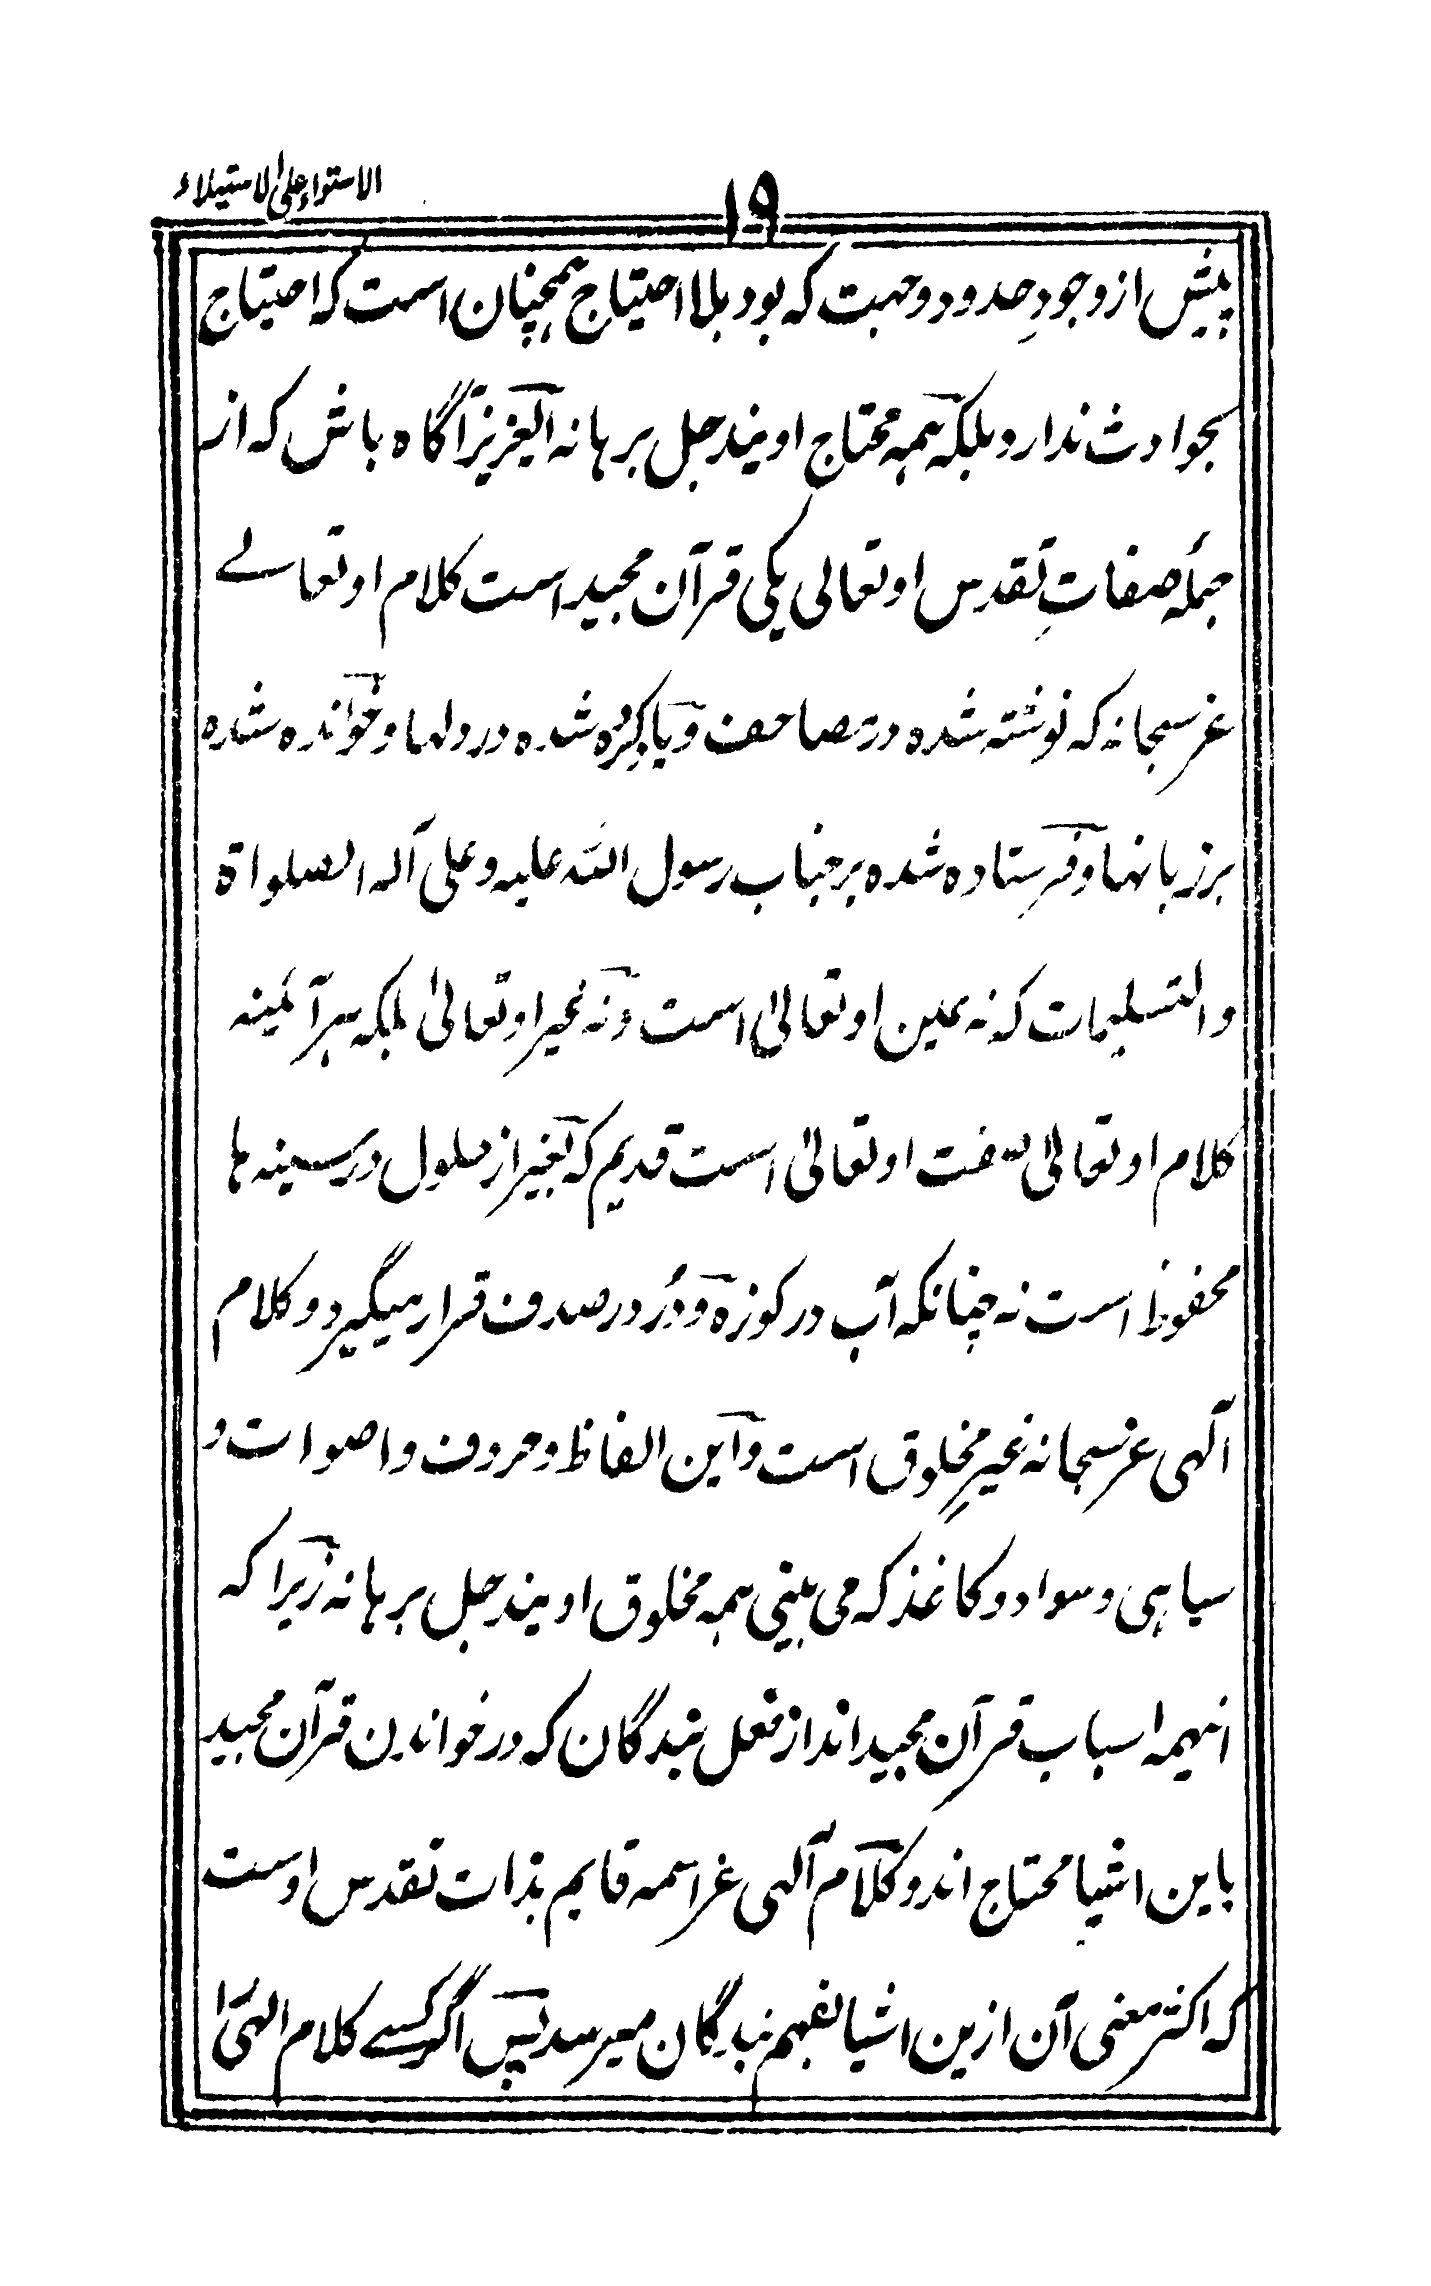 الاستواء علی الاستیلاء
۱۹
پیش از وجودِ حدود و جهت که بود بلا احتیاج همچنان است که احتیاج
بحوادث ندارد و بلکه همه محتاج اویند جل برهانه ای عزیز آگاه باش که از
جملهٔ صفاتِ تقدس او تعالی یکی قرآن مجید است کلام او تعالے
عز سبحانه که نوشته شده در مصاحف و یاد کرده شده در دلها و خوانده شده
بر زبانها و فرستاده شده بر جناب رسول الله علیه و علی آله الصلواة
والتسلیمات که نه عین او تعالیٰ است و نه غیر او تعالیٰ بلکه هر آئینه
کلام او تعالیٰ صفت او تعالیٰ است قدیم که بغیر از حلول در سینه ها
محفوظ است نه چنانکه آب در کوزه و دُر در صدف قرار میگیرد و کلام
آلهی عز سبحانه غیرِ مخلوق است و این الفاظ و حروف و اصوات و
سیاهی و سواد و کاغذ که می بینی همه مخلوق اویند جل برهانه زیرا که
اینهمه اسباب قرآن مجید اند از فعل بندگان که در خواندن قرآن مجید
باین اشیا محتاج اند و کلام آلهی عز اسمه قایم بذات تقدس اوست
که اکثر معنی آن ازین اشیا بفهم بندگان میرسد پس اگر کسے کلام الهی را